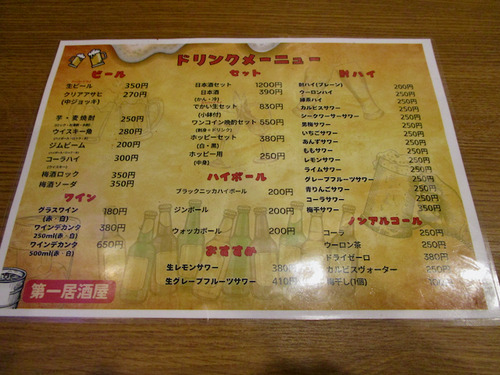 ドリンクメーニュー
ビール
生ビール 350円
クリアアサヒ 270円
(中ジョッキ)
芋・麦焼酎 250円
ウイスキー角 280円
ジムビーム 200円
コーラハイ 300円
梅酒ロック 350円
梅酒ソーダ 350円
ワイン
グラスワイン 180円
(赤・白)
ワインデカンタ 380円
250ml(赤・白)
ワインデカンタ 650円
500ml(赤・白)
第一居酒屋
セット
日本酒セット 1200円
日本酒 390円
(かん・冷)
でかい生セット 830円
(小鉢付)
ワンコイン晩酌セット 550円
(刺身・ドリンク)
ホッピーセット 380円
(白・黒)
ホッピー用 250円
(中身)
ハイボール
ブラックニッカハイボール 200円
ジンボール 200円
ウォッカボール 200円
おすすめ
生レモンサワー 380円
生グレープフルーツサワー 410円
酎ハイ
酎ハイ(プレーン) 200円
ウーロンハイ 250円
緑茶ハイ 250円
カルピスサワー 250円
シークワーサーサワー 250円
黒梅サワー 250円
いちごサワー 250円
あんずサワー 250円
ももサワー 250円
レモンサワー 250円
ライムサワー 250円
グレープフルーツサワー 250円
青りんごサワー 250円
コーラサワー 250円
梅干サワー 350円
ノンアルコール
コーラ 250円
ウーロン茶 250円
ドライゼーロ 380円
カルピスヴォーター 250円
梅干し(1個)